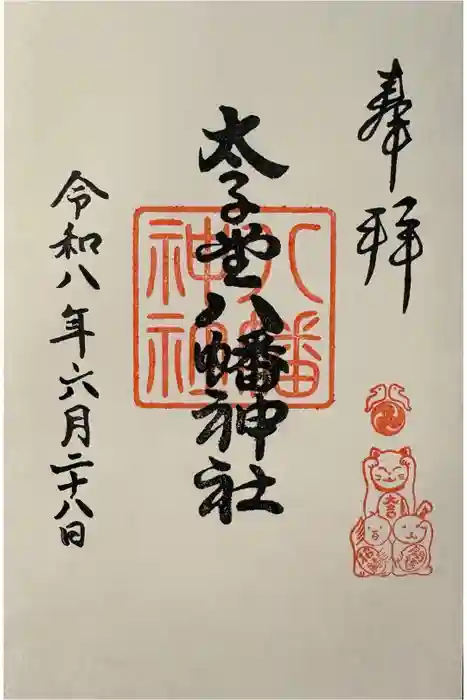 奉拝
太子堂八幡神社
八幡
神社
令和八年六月二十八日
大吉